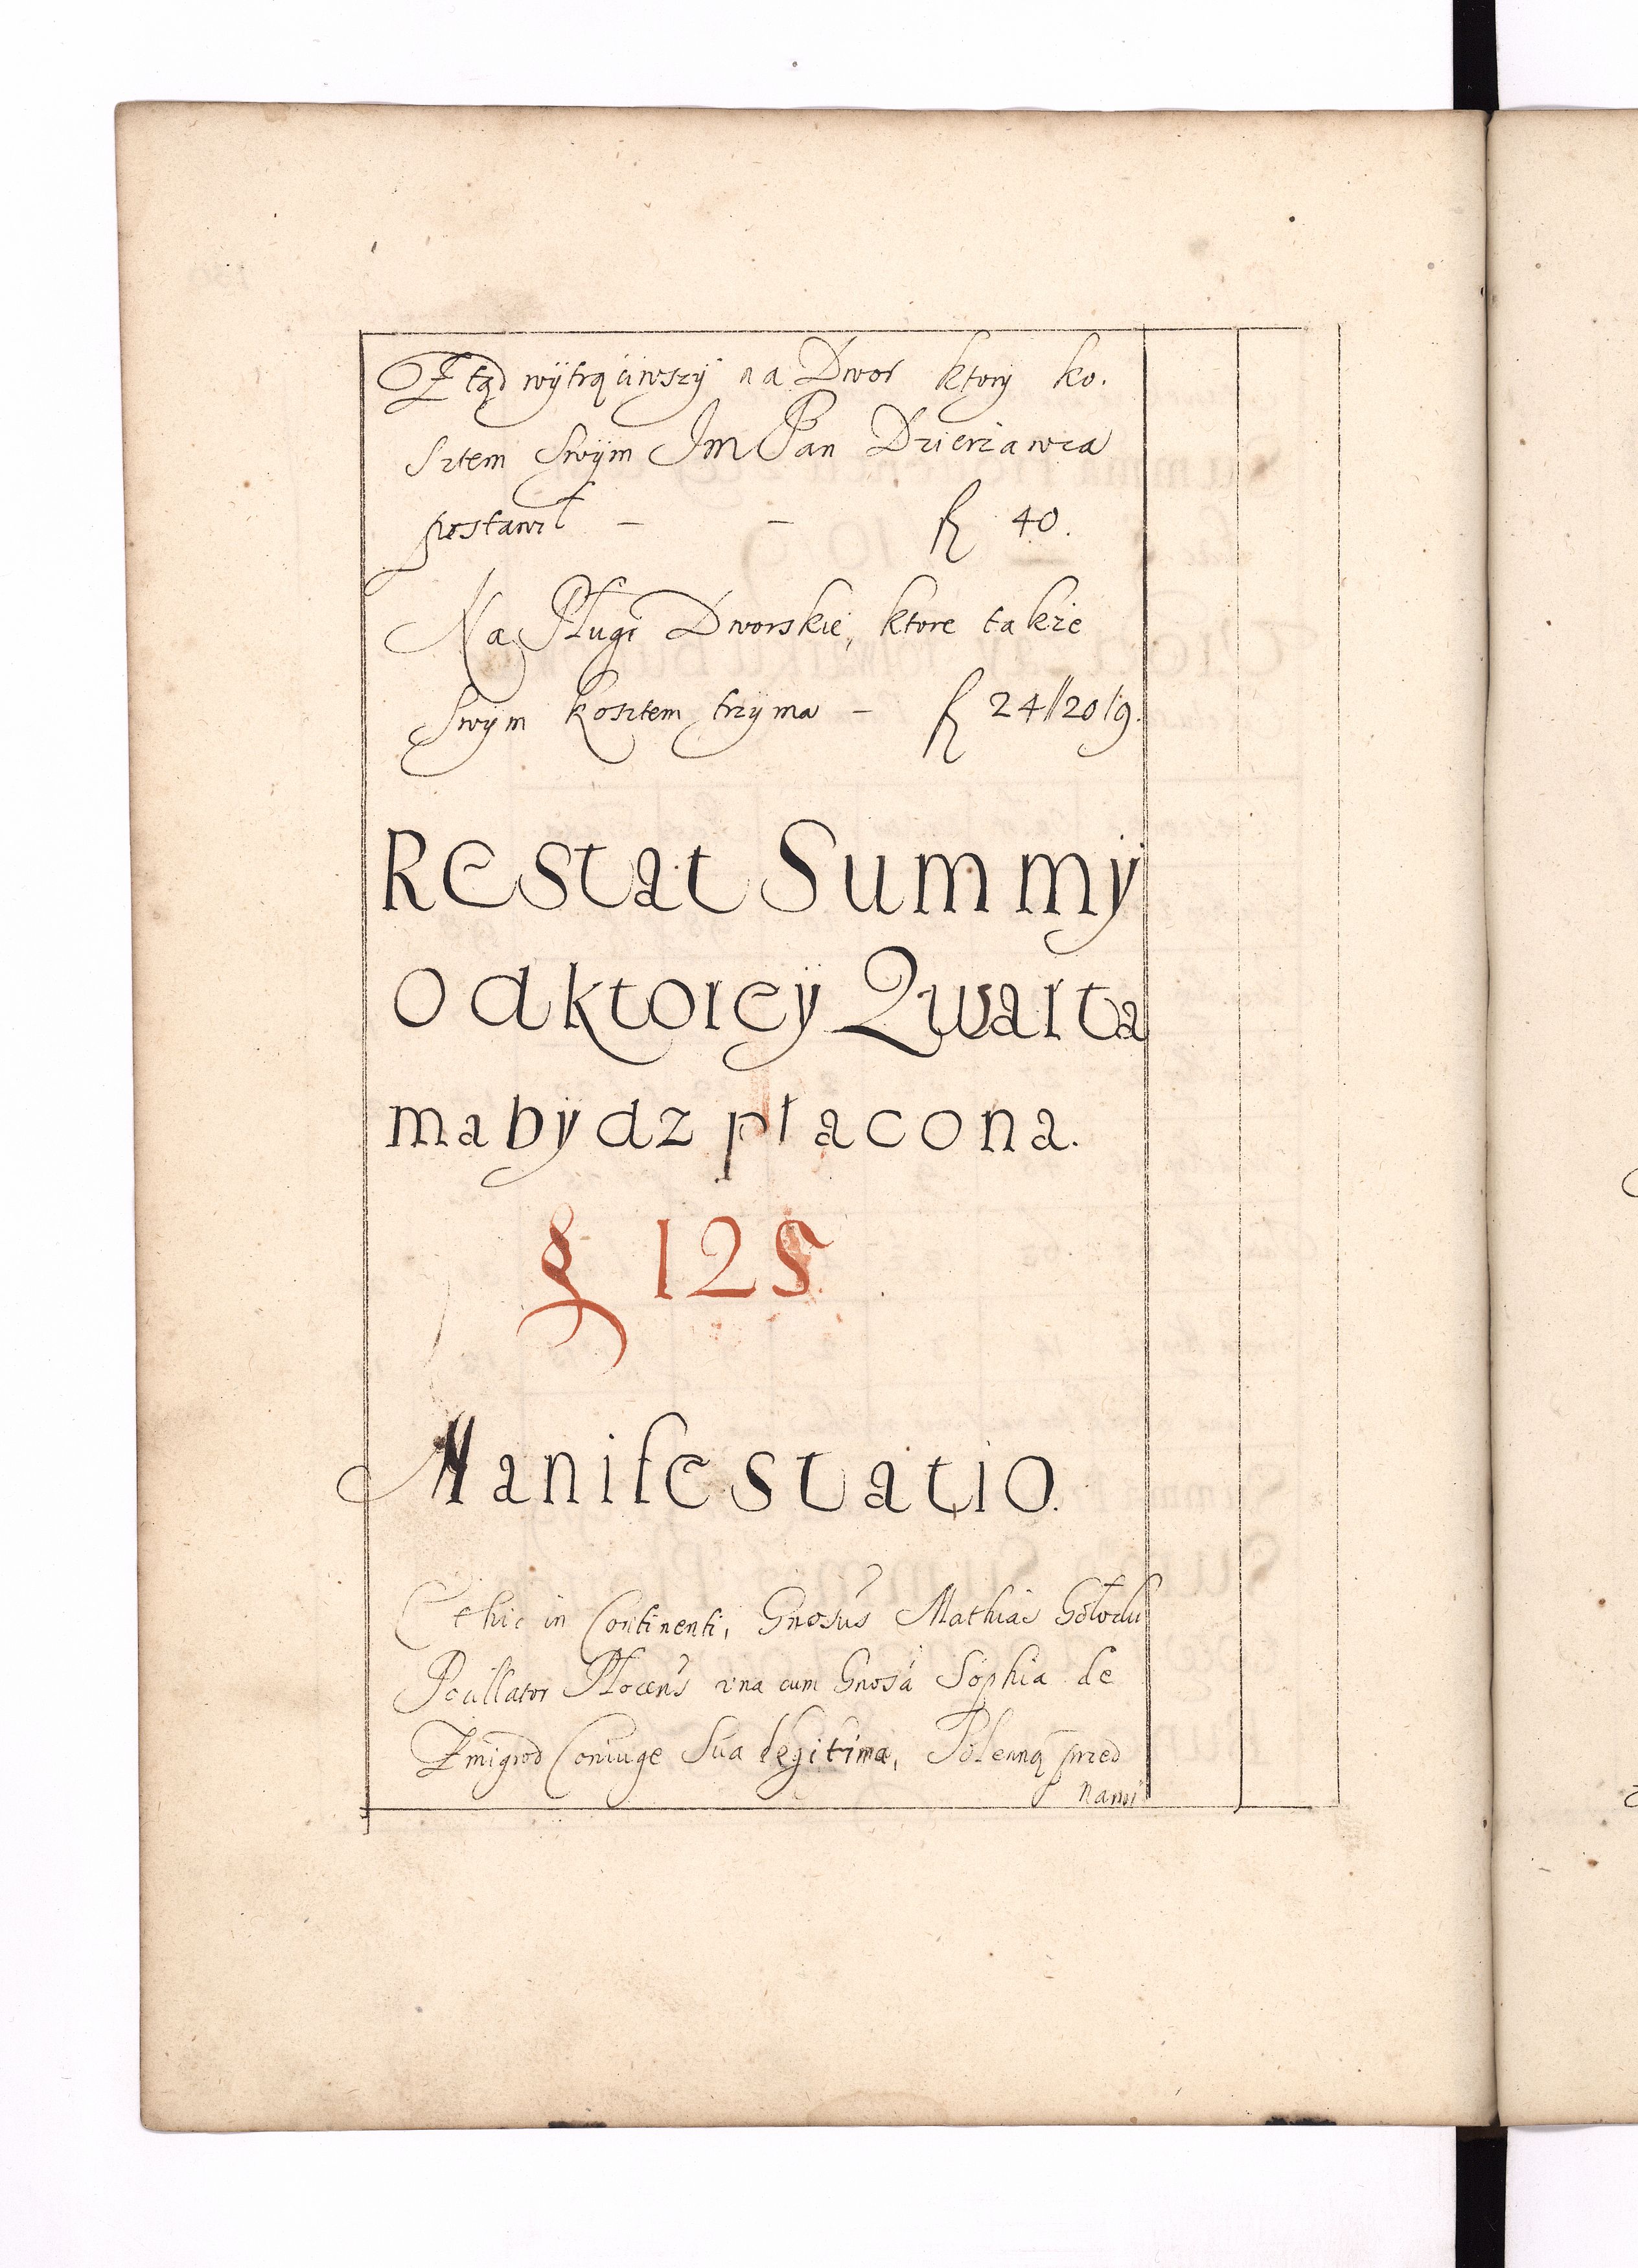 Ztąd wÿtrąciwszÿ na Dwor ktorÿ ko.
sztem Swÿm Im Pan Dzierżawca
postawił – – fl 40.
Na Pługi Dworskie, ktore takze
Swÿm kosztem trzÿma – fl 24//20/9.
Restat Summÿ
od ktoreÿ Quarta
ma bÿdz płacona.
fl 125
Manifestatio.
Et hic in Continenti, Gnosus Mathias
Płocens vna cum Gnosa Sophia de
Zmigrod Coniuge Sua legitima, przed
nami